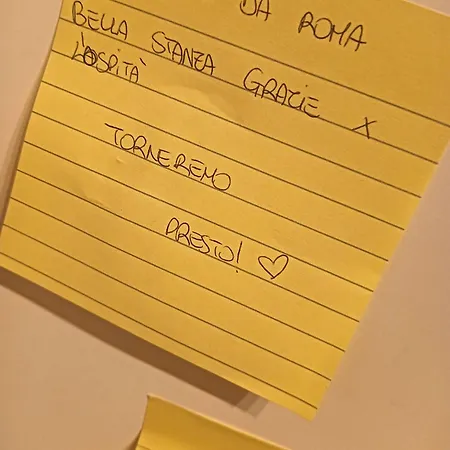 DA ROMA
BELLA STANZA GRAZIE X
L'OSPITÀ
TORNEREMO
PRESTO! ♡